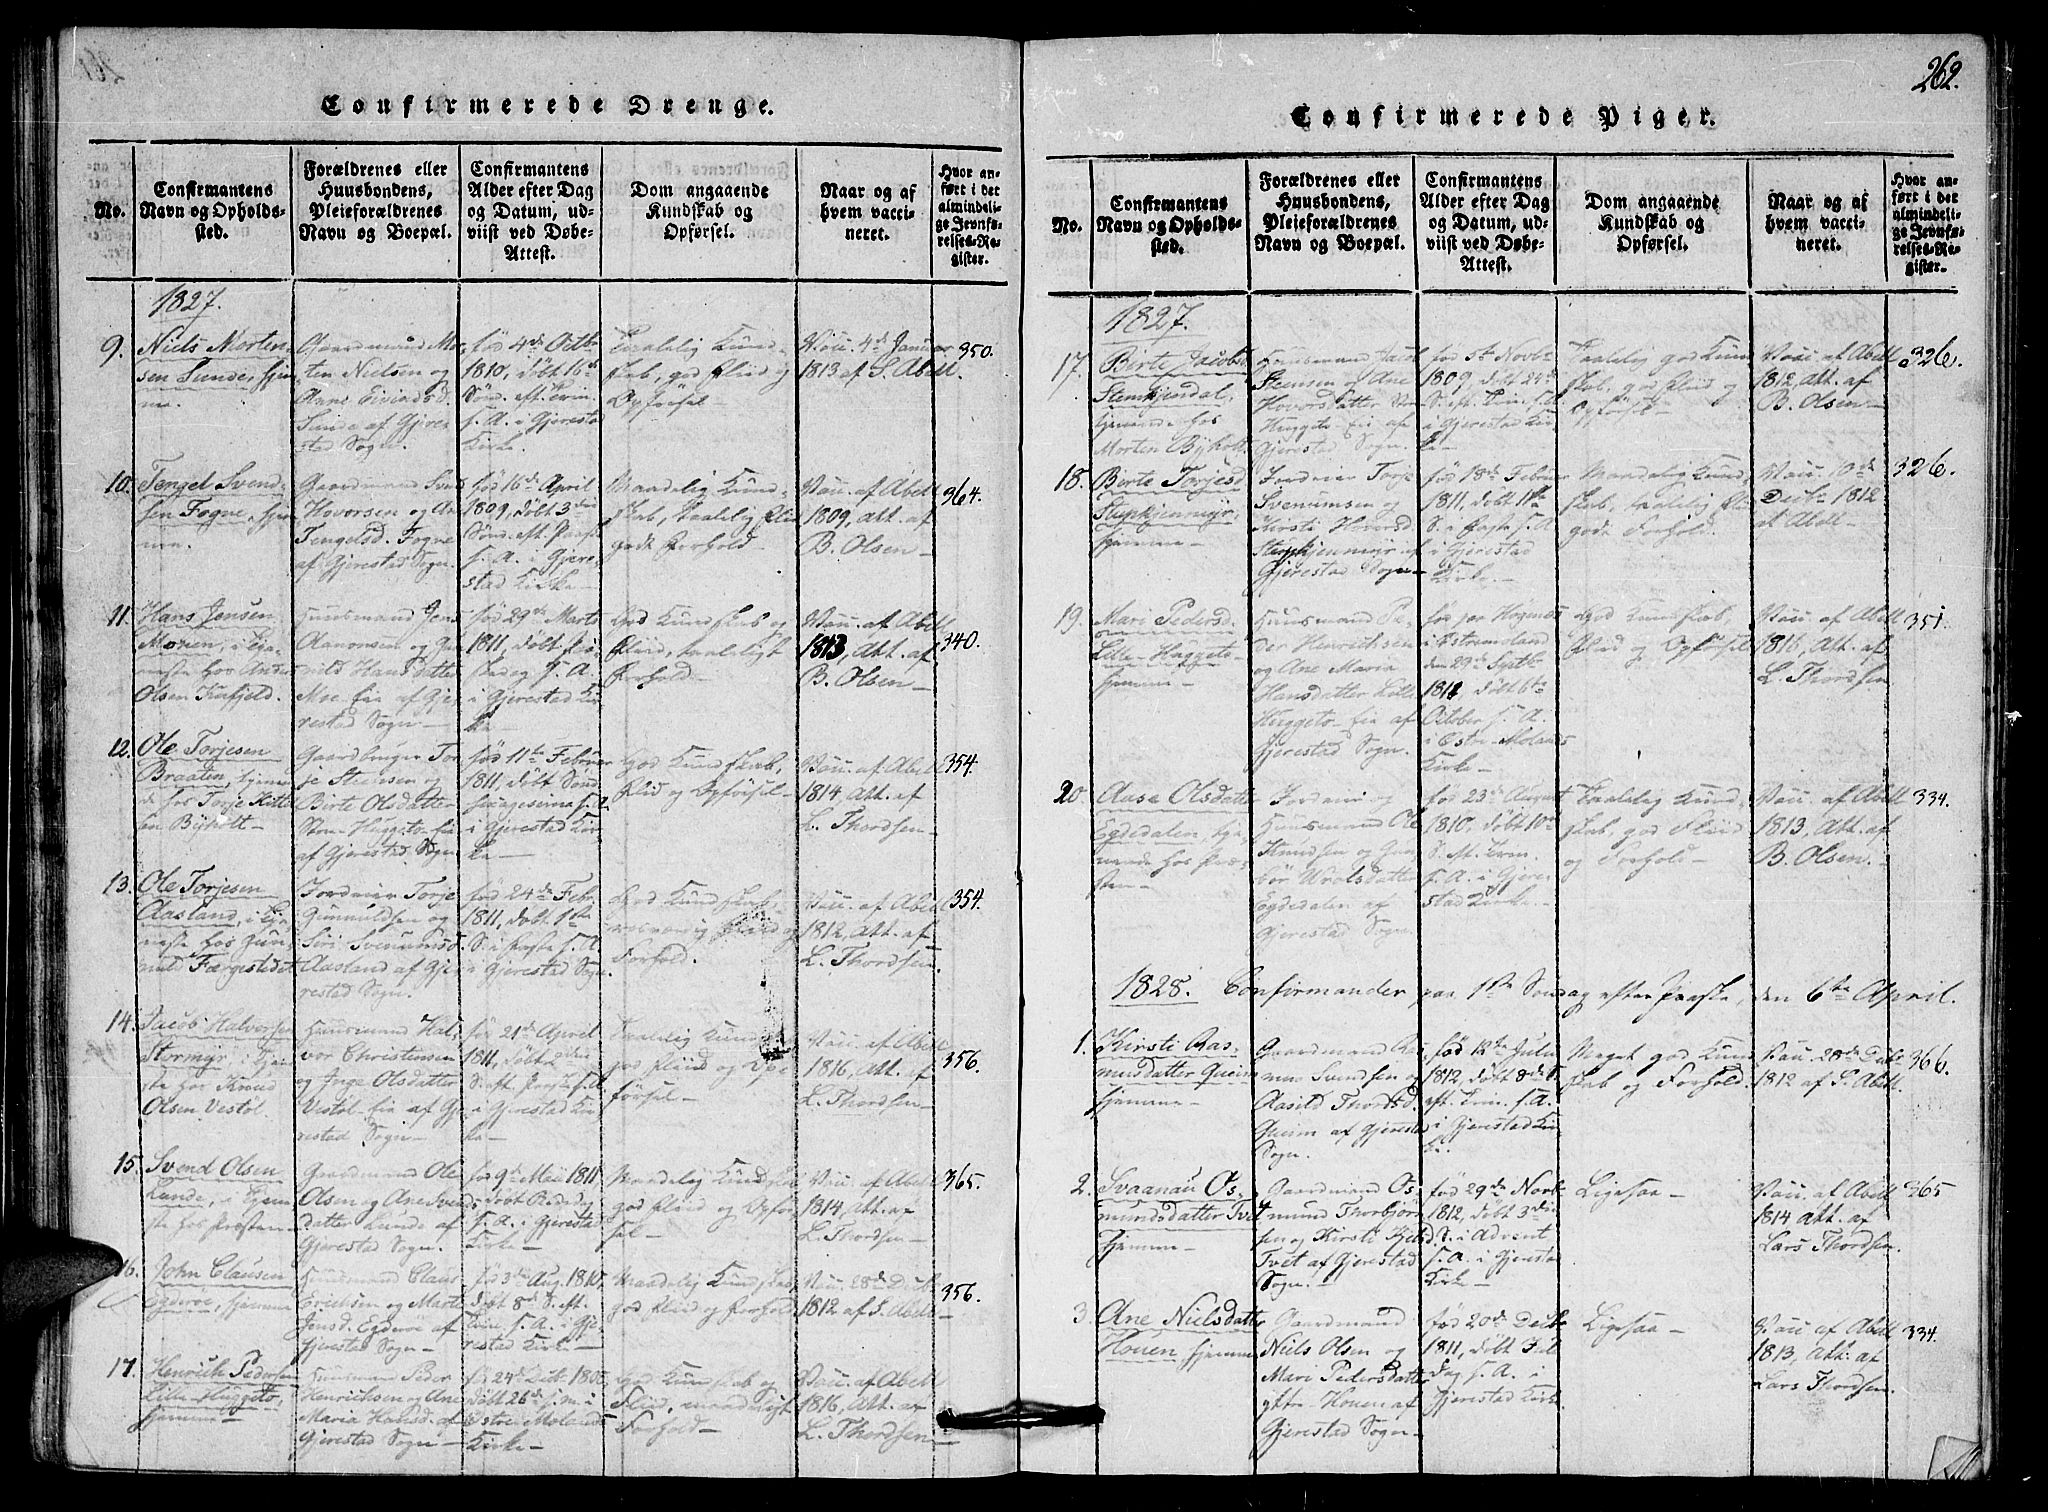 262.
Confirmerede Drenge.
No.
Confirmantens
Navn og Opholds-
sted.
Forældrenes eller
Huusbondens,
Pleieforældrenes
Navn og Boepæl.
Confirmantens
Alder efter Dag
og Datum, ud-
viist ved Døbe-
Attest.
Dom angaaende
Kundskab og
Opførsel.
Naar og af
hvem vacci-
neret.
Hvor an-
ført i det
almindeli-
ge Jevnfø-
relses-Re-
gister.
1827.
9.
Niels Morten-
sen Sunde, hjem-
me.
Gaardmand Mor-
ten Nielsen og
Anne Eivindsd.
Sunde af Gjere-
stad Sogn.
fød 4de Octbr
1810, døbt 16de
Sønd. eft. Trin.
s. A. i Gjerestad
Kirke.
Taalelig Kund-
skab, god Fliid og
Opførsel –
Vacc. 4de Januar
1813 af S. Abell.
350.
10.
Tengel Svend-
sen Fogne, hjem-
me.
Gaardmand Svend
Hovorsen og Ane
Tengelsd. Fogne
af Gjerestad Sogn.
fød 16de April
1809, døbt 3die
Sønd. eft. Paaske
s. A. i Gjere-
stad Kirke –
Maadelig Kund-
skab, taalelig Fliid
godt Forhold –
Vacc. af Abell
1809, Att. af
B. Olsen –
364.
11.
Hans Jensen
Moeen, i Tje-
neste hos Anders
Olsen Kufjeld.
Huusmand Jens
Aanonsen og Gun-
nild Hansdatter
Moe Eie af Gje-
restad Sogn –
fød 29de Marts
1811, døbt
s. A.
i Gjerestad Kir-
ke –
God Kundskab og
Fliid, taaleligt
Forhold –
Vacc. af Abell
1813, Att. af
B. Olsen –
340.
12.
Ole Torjesen
Braaten, tjenen-
de hos Torje Kittel-
sen Byholt –
Gaardbruger Tor-
je Steensen og
Birte Olsdatter
Store-Huggeto-Eie
af Gjerestad Sogn
fød 11te Februar
1811, døbt Sønd.
Sexagesima s. A.
i Gjerestad Kir-
ke –
God Kundskab,
Fliid og Opførsel –
Vacc. af Abell
1814, Att. af
L. Thordsen –
354.
13.
Ole Torjesen
Aasland, i Tje-
neste hos Gun-
nuld Færgestedet
Jordeier Torje
Gunnuldsen og
Siri Svenumsd.
Aasland af Gje-
restad Sogn.
fød 24de Febr.
1811, døbt 1ste
S. i Faste s. A.
i Gjerestad Sogn.
God Kundskab,
Fliid og
Forhold –
Vacc. af Abell
1812, Att. af
L. Thordsen.
354.
14.
Jacob Halvorsen
Stormyr, i Tjene-
ste hos Knud
Olsen Vestøl.
Huusmand Hal-
vor Christensen
og Inge Olsdatter
Vestøl-Eie af Gje-
restad Sogn –
fød 21de April
1811, døbt 2den
S. eft. Paaske s. A.
i Gjerestad Kir-
ke –
Taalelig Kund
god Fliid og Op-
førsel –
Vacc. af Abell
1816, Att. af
L. Thordsen –
356.
15.
Svend Olsen
Lunde, i Tjene-
ste hos Præsten –
Gaardmand Ole
Olsen og Ane Svends-
datter Lunde af
Gjerestad Sogn.
fød 9de Mai 1811
døbt
s. A. i Gjerestad
Kirke –
Maadelig Kundskab
god Fliid og Opfør-
sel –
Vacc. af Abell
1814, Att. af
L. Thordsen –
365.
16.
John Clausen
Egderøe, hjemme
Huusmand Claus
Ericksen og Marte
Jensd. Egderøe af
Gjerestad Sogn –
fød 3die Aug. 1810,
døbt 8de S. eft.
Trin. s. A. i Gje-
restad Kirke –
Maadelig Kundskab,
god Fliid og Forhold
Vacc. 28de Decbr
1812 af S. Abell –
356.
17.
Henrich Pedersen
Lille-Huggeto,
hjemme –
Huusmand Peder
Henrichsen og Ane
Maria Hansd. af
Gjerestad Sogn –
fød 24de Decbr. 1805,
døbt 26de s. m. i
Østre Molands
Kirke –
God Kundskab og
Fliid, maadeligt
Forhold –
Vacc. af Abell
1816, Att. af
L. Thordsen –
Confirmerede Piger.
No.
Confirmantens
Navn og Opholds-
sted.
Forældrenes eller
Huusbondens,
Pleieforældrenes
Navn og Boepæl.
Confirmantens
Alder efter Dag
og Datum, ud-
viist ved Døbe-
Attest.
Dom angaaende
Kundskab og
Opførsel.
Naar og af
hvem vacci-
neret.
Hvor an-
ført i det
almindeli-
ge Jevnfø-
relses-Re-
gister.
1827.
17.
Birte Jacobsd.
Steenkjendal,
tjenende hos
Morten Byholt
Huusmand Jacob
Steensen og Ane
Hovorsdatter
Huggeto-Eie af
Gjerestad Sogn.
fød 5te Novbr
1809, døbt 24de
S. eft. Trin. s. A.
i Gjerestad Kir-
ke –
Taalelig god Kund-
skab, god Fliid og
Opførsel –
Vacc. af Abell
1812, Att. af
B. Olsen –
326.
18.
Birte Torjesd.
hjemme –
Jordeier Torje
Svenumsen og
Kirsti Hovorsd.
af
Gjerestad Sogn –
fød 18de Februar
1811, døbt 1ste
S. i Faste s. A.
i Gjerestad
Kirke. –
Maadelig Kund-
skab, taalelig Fliid
godt Forhold.
Vacc. 10de
Decbr 1812
af Abell –
326.
19.
Mari Pedersd.
Lille-Huggeto-
hjemme –
Huusmand Pe-
der Henrichsen
og Ane Maria
Hansdatter Lille
Huggeto-Eie af
Gjerestad Sogn.
fød paa
i Østremoland
den 29de Septbr
1811, døbt 6te
October s. A.
i Østre-Molands
Kirke –
God Kundskab,
Fliid og Opførsel
Vacc. af Abell
1816, Att. af
L. Thordsen –
351.
20.
Aase Olsdatter
Egdedalen, tje-
nende hos Præ-
sten –
Jordeier og
Huusmand Ole
Knudsen og Gun-
bør Wrolsdatter
Egdedalen af
Gjerestad Sogn.
fød 23de August
1810, døbt 10de
S. eft. Trin.
s. A. i Gjere-
stad Kirke –
Taalelig Kund-
skab, god Fliid
og Forhold –
Vacc. af Abell
1813, Att. af
B. Olsen –
334.
1828. Confirmander paa 1ste Søndag efter Paaske, den 6te April.
1.
Kirsti Ras-
musdatter Qveim
hjemme –
Gaardmand Ras-
mus Svendsen og
Aasild Thordsd.
Qveim af Gjerestad
Sogn.
fød 12te Julii
1812, døbt 8de S.
eft. Trin. s. A.
i Gjerestad Kir-
ke.
Meget god Kund-
skab og Forhold.
Vacc. 28de Decbr
1812 af S. Abell.
366.
2.
Svaanau Os-
mundsdatter Tvet
hjemme –
Gaardmand Os-
mund Thorbjørn-
sen og Kirsti Kjelsd.
Tvet af Gjerestad
Sogn. –
fød 29de Novb.
1812, døbt 3die
S. i Advent
s. A. i Gjerestad
Kirke –
Ligesaa –
Vacc. af Abell
1814 Att. af
Lars Thordsen.
365
3.
Ane Nielsdatter
Houen hjemme
Gaardmand
Niels Olsen og
Mari Pedersdatter
yttre-Houen af
Gjerestad Sogn –
fød 20de Decbr
1811, døbt Jul
Dag s. A. i
Gjerestad Kirke
Ligesaa –
Vacc. af Abell
1813, Att. af
Lars Thordsen.
334.